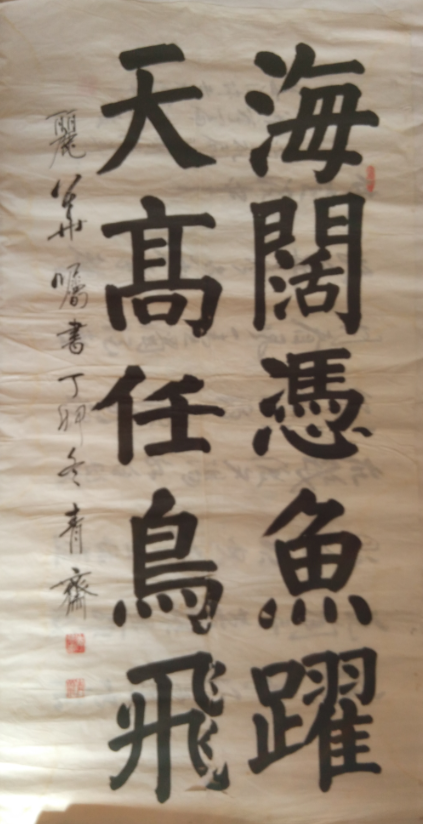 海闊憑魚躍
天高任鳥飛
麗華囑書丁卯冬青齋